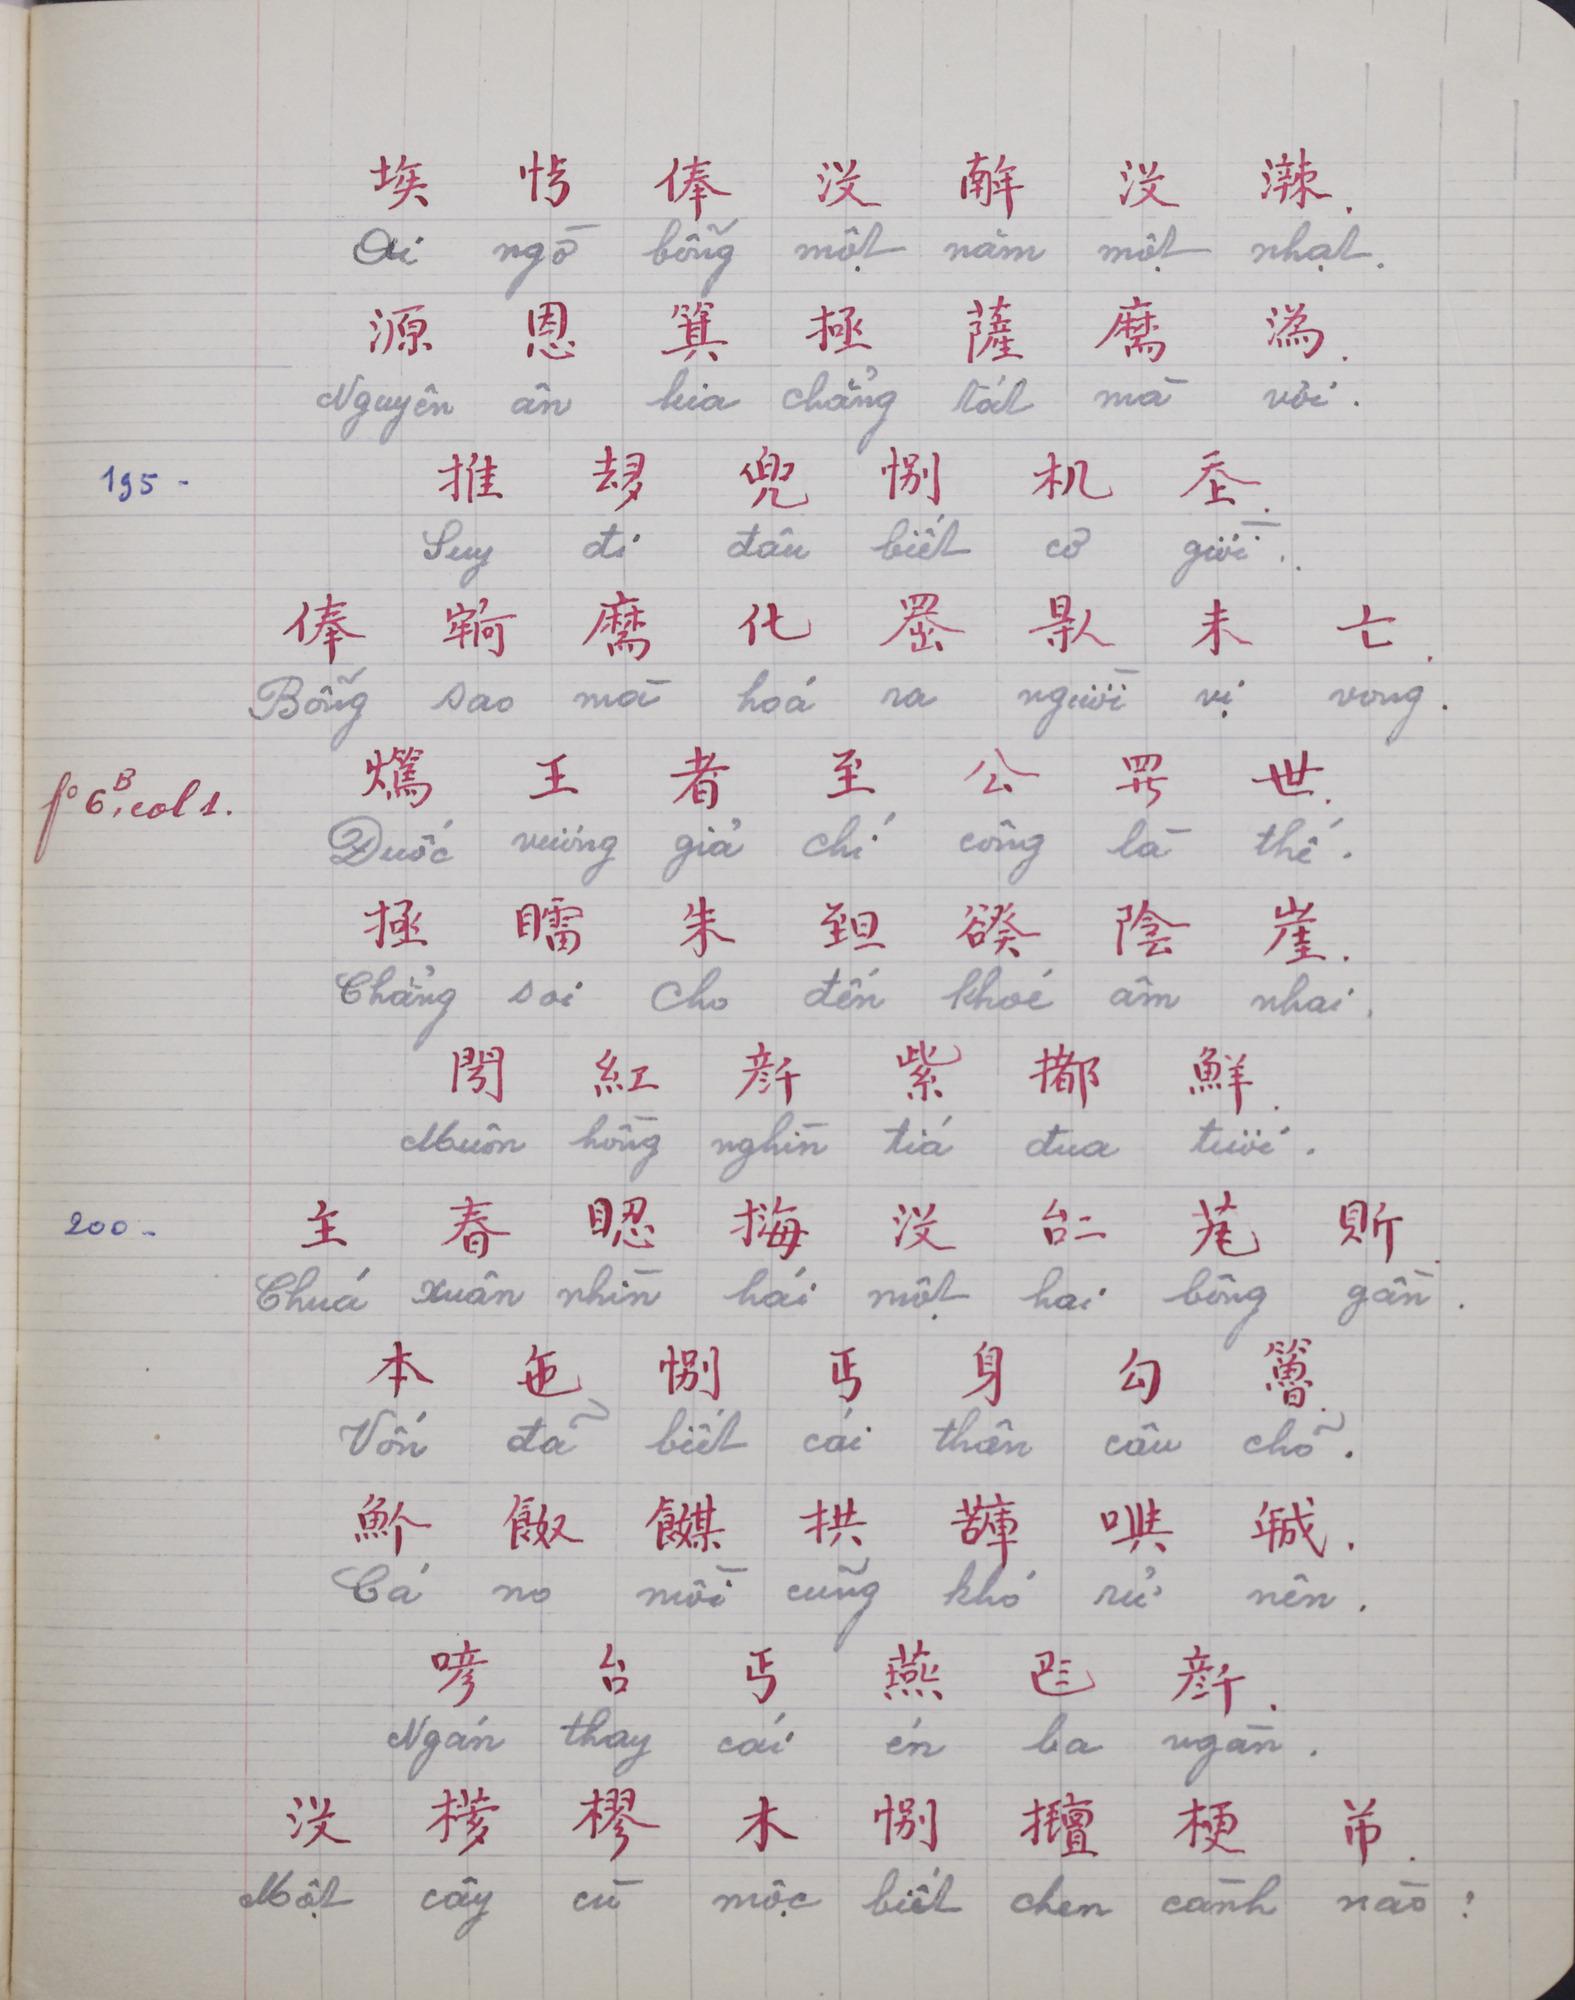 埃 俸 沒 𢆥 沒 溂.
Ai ngờ bỗng một năm một nhạt.
源 恩 箕 拯 薩 麻 潙.
Nguyên ân kia chẳng tát mà vơi.
195 -
推 𠫾 兜 別 机 𡗶.
Suy đi đâu biết cơ giời.
俸 麻 化 𠚢 𠊛 未 亡.
Bỗng sao mà hoá ra người vị vong.
fº 6ᴮ, col 1.
王 者 至 公 𱺵 世.
Đuốc vương giả chí công là thế.
拯 𥌧 朱 𦤾 陰 崖.
Chẳng soi cho đến khoé âm nhai.
閍 紅 紫 都 鮮.
Muôn hồng nghìn tiá đua tươi.
200 -
主 春 𥊚 沒 𠄩 葻
Chuá xuân nhìn hái một hai bông gần.
本 㐌 別 丐 身 勾
Vốn đã biết cái thân câu chõ.
拱 𢧚.
Cá no mồi cũng khó rử nên.
喭 台 丐 燕 𠀧
Ngán thay cái én ba ngàn.
沒 樛 木 別 梗 芇
Một cây cù mộc biết chen cành nào?